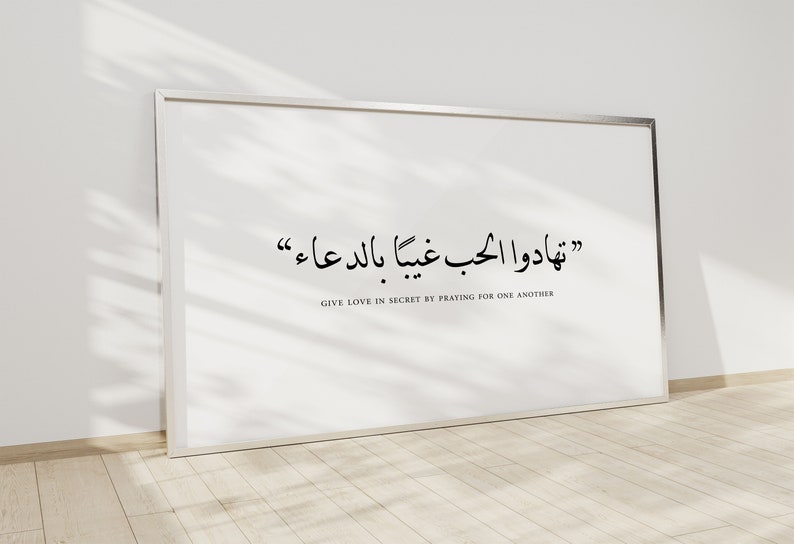 ”تهادوا الحب غيبًا بالدعاء“
GIVE LOVE IN SECRET BY PRAYING FOR ONE ANOTHER